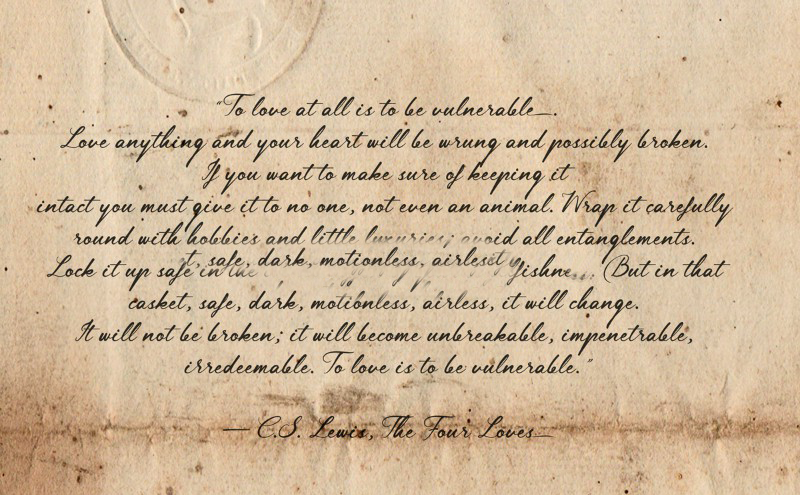 "To love at all is to be vulnerable.
Love anything and your heart will be wrung and possibly broken.
If you want to make sure of keeping it
intact you must give it to no one, not even an animal. Wrap it carefully
round with hobbies and little luxuries; avoid all entanglements.
t, safe, dark, motionless, airless
Lock it up safe in the (But in that
casket, safe, dark, motionless, airless, it will change.
It will not be broken; it will become unbreakable, impenetrable,
irredeemable. To love is to be vulnerable."
— C.S. Lewis, The Four Loves